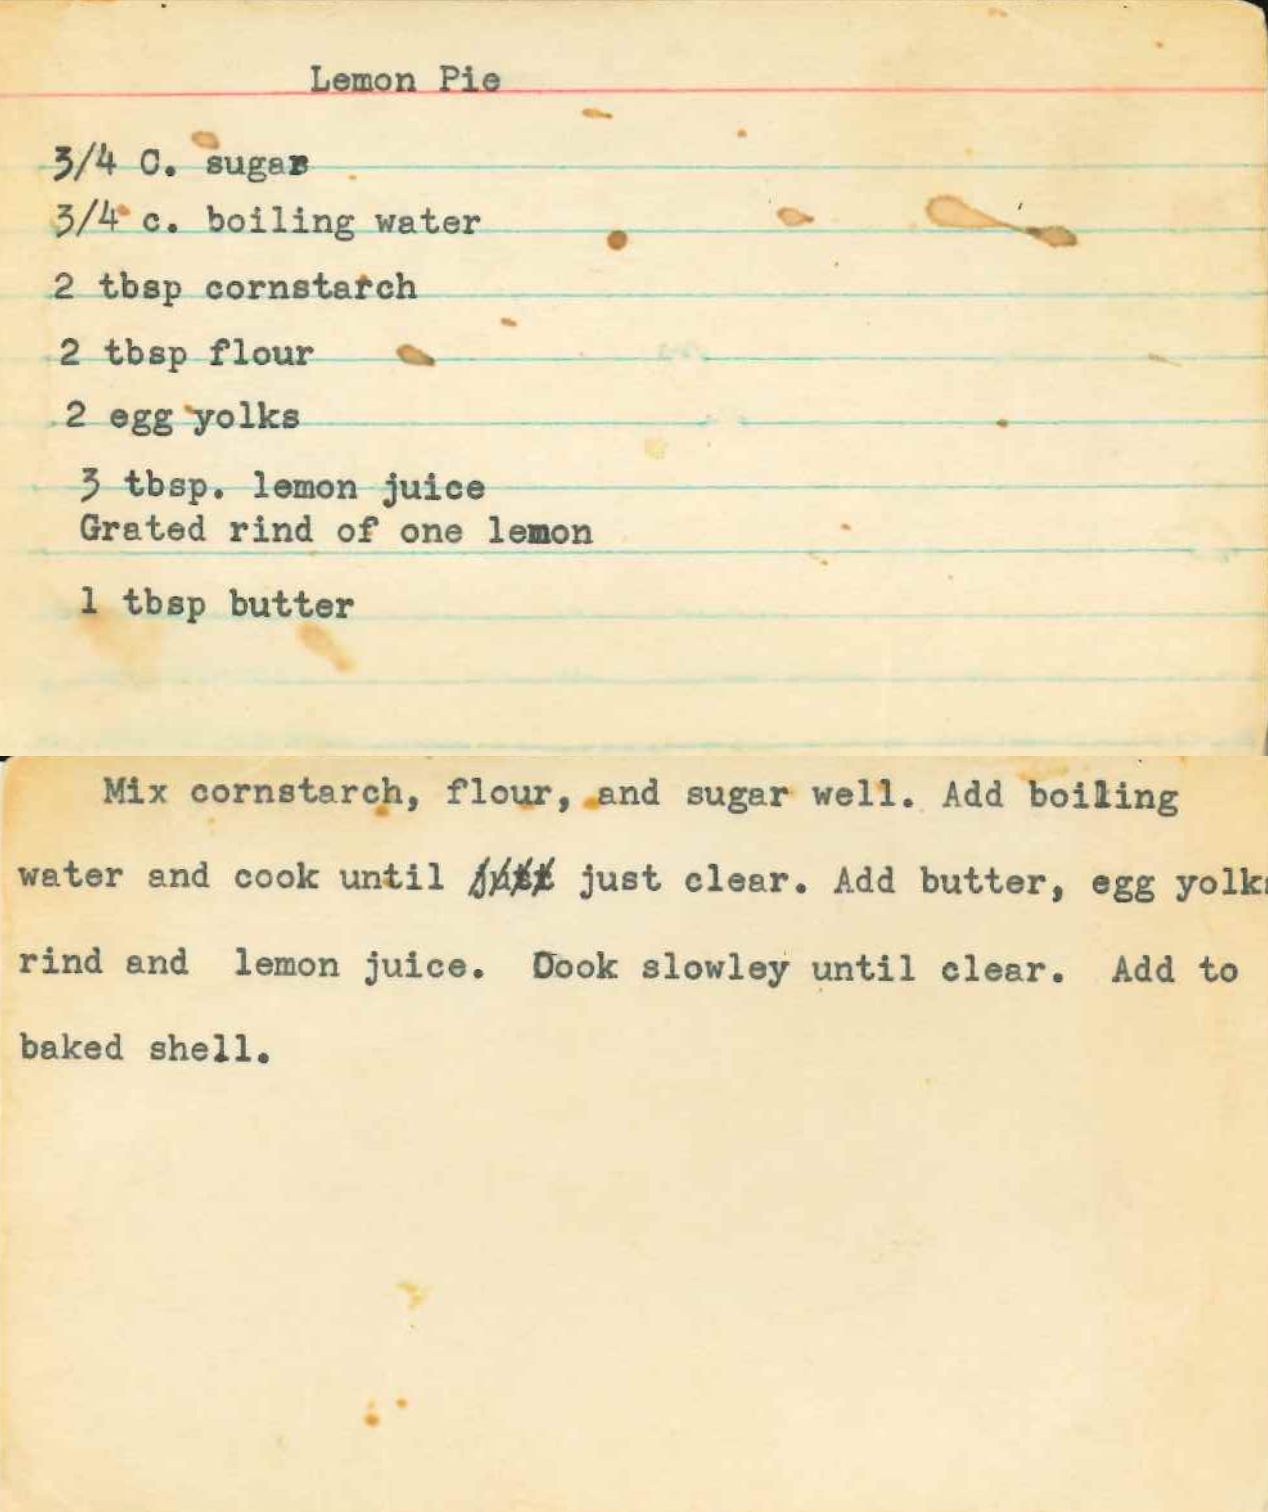 Lemon Pie
3/4 C. sugar
3/4 c. boiling water
2 tbsp cornstarch
2 tbsp flour
2 egg yolks
3 tbsp. lemon juice
Grated rind of one lemon
1 tbsp butter
Mix cornstarch, flour, and sugar well. Add boiling
water and cook until just clear. Add butter, egg yolks
rind and lemon juice. Cook slowley until clear. Add to
baked shell.